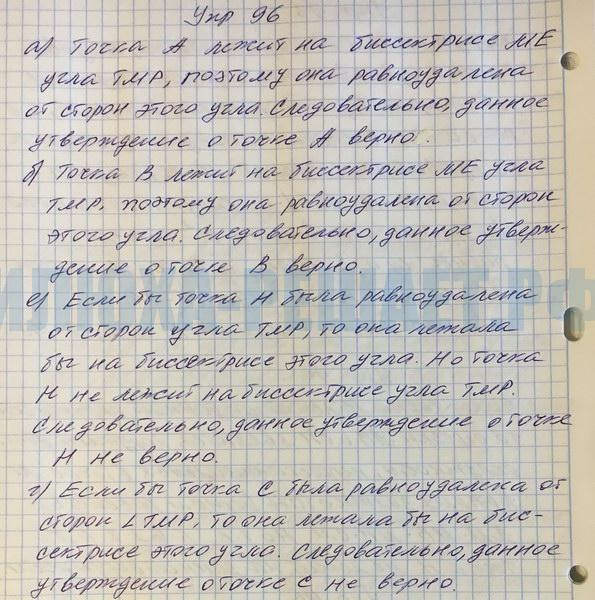 Упр 96
а) Точка А лежит на биссектрисе МЕ
угла ТМР, поэтому она равноудалена
от сторон этого угла. Следовательно, данное
утверждение о точке А верно.
б) Точка В лежит на биссектрисе МЕ угла
ТМР, поэтому она равноудалена от сторон
этого угла. Следовательно, данное утверж-
дение о точке В верно.
е) Если бы точка Н была равноудалена
от сторон угла ТМР, то она лежала
бы на биссектрисе этого угла. Но точка
Н не лежит на биссектрисе угла ТМР.
Следовательно, данное утверждение о точке
Н не верно.
г) Если бы точка С была равноудалена от
сторон ∠ТМР, то она лежала бы на бис-
сектрисе этого угла. Следовательно, данное
утверждение о точке С не верно.